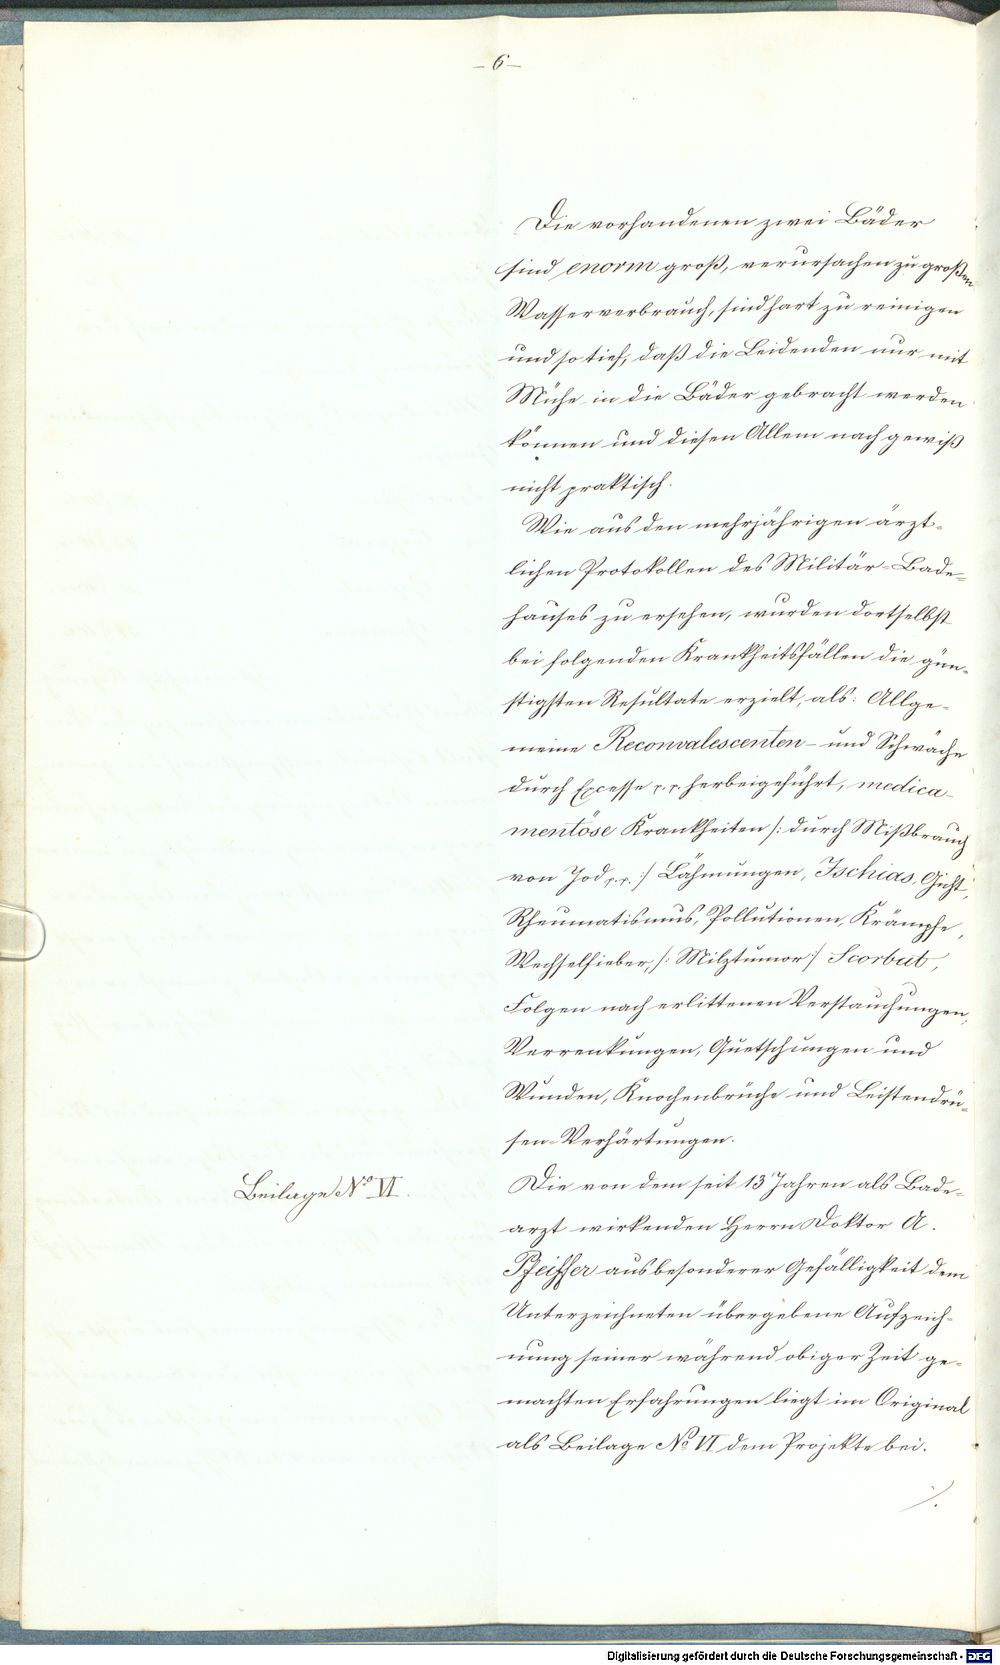 – 6 –
Die vorhandenen zwei Bäder
sind enorm groß, verursachen zu großen
Wasserverbrauch, sind hart zu reinigen
und so tief, daß die Leidenden nur mit
Mühe in die Bäder gebracht werden
können und diesen Allem nach gewiß
nicht praktisch.
Wie aus den mehrjährigen ärzt-
lichen Protokollen des Militär-Bade-
hauses zu ersehen, wurden dortselbst
bei folgenden Krankheitsfällen die gün-
stigsten Resultate erzielt, als: Allge-
meine Reconvalescenten- und Schwäche
durch Excesse r. r. herbeigeführt, medica-
mentöse Krankheiten /: durch Mißbrauch
von Jod r. r. :/ Lähmungen, Ischias, Gicht,
Rheumatismus, Pollutionen, Krämpfe,
Wechselfieber, /: Milztumor :/ Scorbut,
Folgen nach erlittenen Verstauchungen,
Verrenkungen, Quetschungen und
Wunden, Knochenbrüche und Leistendrü-
sen-Verhärtungen.
Beilage No VI.
Die von dem seit 13 Jahren als Bade-
arzt wirkenden Herrn Doktor A.
Pfeiffer aus besonderer Gefälligkeit dem
Unterzeichneten übergebene Aufzeich-
nung seiner während obiger Zeit ge-
machten Erfahrungen liegt im Original
als Beilage No VI dem Projekte bei.
./.
Digitalisierung gefördert durch die Deutsche Forschungsgemeinschaft - DFG